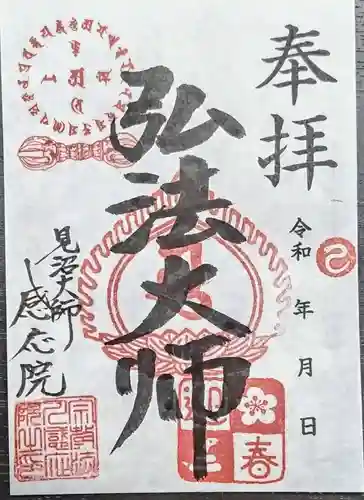 奉拝
令和 年 月 日
弘法大師
見沼大師
感応院
春